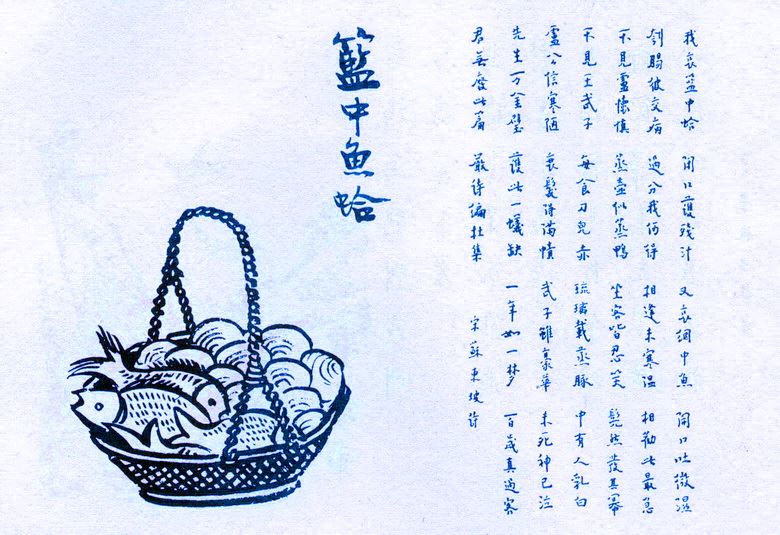 我哀籃中蛤 閉口護殘汁 又哀網中魚 開口吐微濕
刳腸彼交病 過分我何得 相逢未寒溫 相勸此最急
不見盧懷慎 蒸壺似蒸鴨 坐客皆忍笑 髡然發其冪
不見王武子 每食刀兒赤 琉璃載蒸豚 中有人乳白
盧公信寒陋 衰髮得滿幘 武子雖豪華 未死神已泣
先生万金璧 護此一蟻缺 一年如一梦 百歲真過客
君無廢此篇 嚴詩編杜集 宋蘇東坡詩
籃中魚蛤